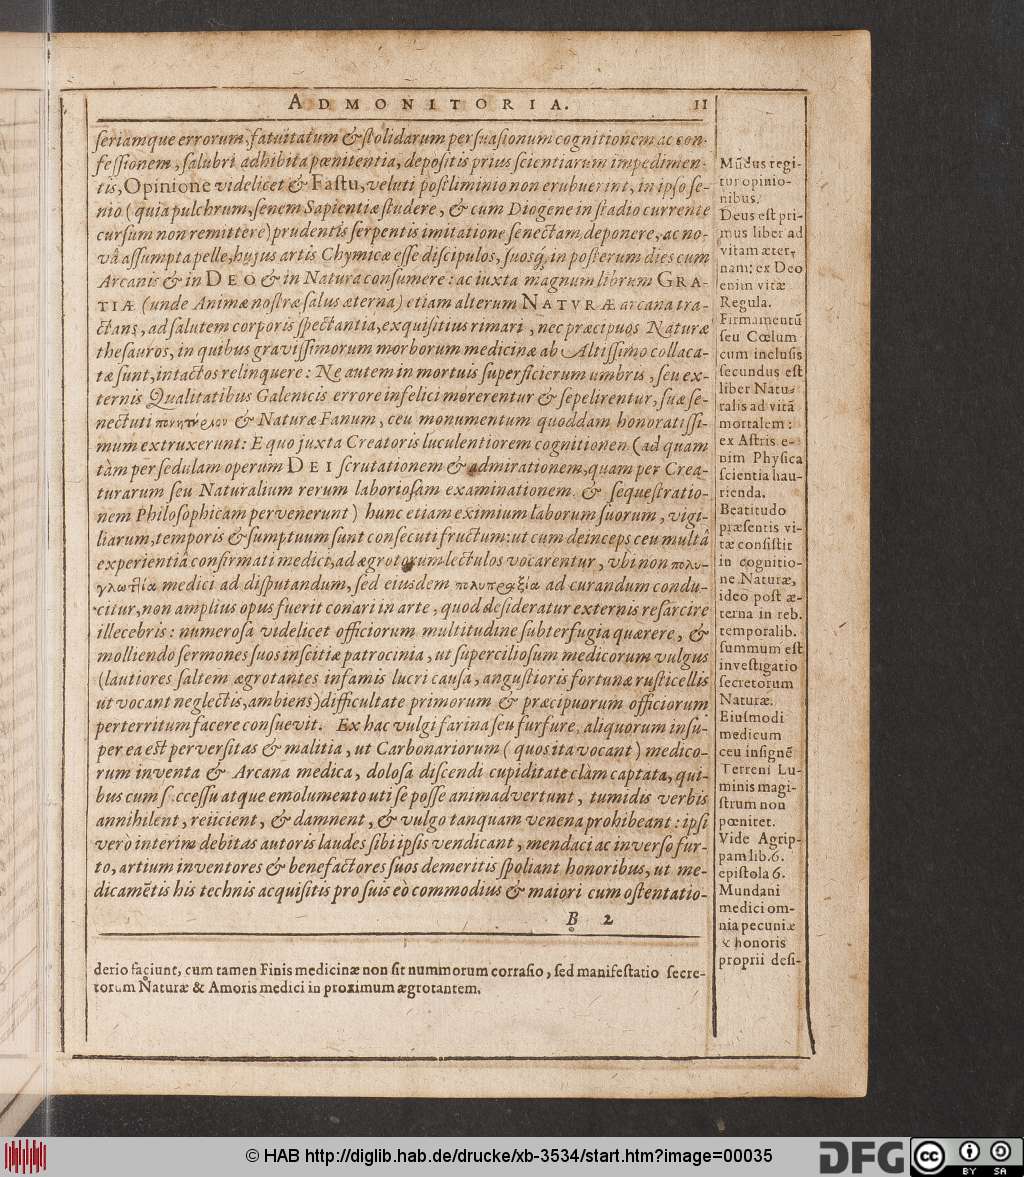 ADMONITORIA. 11
seriamque errorum, fatuitatum & stolidarum persuasionum cognitionem ac con-
fessionem, salubri adhibita pœnitentia, depositis prius scientiarum impedimen-
tis, Opinione videlicet & Fastu, veluti postliminio non erubuerint, in ipso se-
nio (quia pulchrum, senem Sapientiæ studere, & cum Diogene in stadio currente
cursum non remittere) prudentis serpentis imitatione senectam deponere, ac no-
vâ assumpta pelle, hujus artis Chymicæ esse discipulos, suosq́, in posterum dies cum
Arcanis & in DEO & in Natura consumere: ac iuxta magnum librum GRA-
TIÆ (unde Animæ nostræ salus æterna) etiam alterum NATVRÆ arcana tra-
ctans, ad salutem corporis spectantia, exquisitius rimari, nec præcipuos Naturæ
thesauros, in quibus gravissimorum morborum medicinæ ab Altissimo collaca-
tæ sunt, intactos relinquere: Ne autem in mortuis superficierum umbris, seu ex-
ternis Qualitatibus Galenicis errore infelici morerentur & sepelirentur, suæ se-
nectuti & Naturæ Fanum, ceu monumentum quoddam honoratissi-
mum extruxerunt: E quo juxta Creatoris luculentiorem cognitionen (ad quam
tàm per sedulam operum DEI scrutationem & admirationem, quam per Crea-
turarum seu Naturalium rerum laboriosam examinationem & sequestratio-
nem Philosophicam pervenerunt) hunc etiam eximium laborum suorum, vigi-
liarum, temporis & sumptuum sunt consecuti fructum: ut cum deinceps ceu multâ
experientiâ confirmati medici, ad ægrotorum lectulos vocarentur, ubi non πολυ-
γλωττία medici ad disputandum, sed eiusdem πολυπραξία ad curandum condu-
citur, non amplius opus fuerit conari in arte, quod desideratur externis resarcire
illecebris: numerosa videlicet officiorum multitudine subterfugia quærere, &
molliendo sermones suos inscitiæ patrocinia, ut superciliosum medicorum vulgus
(lautiores saltem ægrotantes infamis lucri causa, angustioris fortunæ rusticellis
ut vocant neglectis, ambiens) difficultate primorum & præcipuorum officiorum
perterritum facere consuevit. Ex hac vulgi farina seu furfure, aliquorum insu-
per ea est perversitas & malitia, ut Carbonariorum (quos ita vocant) medico-
rum inventa & Arcana medica, dolosa discendi cupiditate clàm captata, qui-
bus cum s ccessu atque emolumento uti se posse animadvertunt, tumidis verbis
annihilent, reiicient, & damnent, & vulgo tanquam venena prohibeant: ipsi
verò interim debitas autoris laudes sibi ipsis vendicant, mendaci ac inverso fur-
to, artium inventores & benefactores suos demeritis spoliant honoribus, ut me-
dicamētis his technis acquisitis pro suis eò commodius & maiori cum ostentatio-
B 2
Mūdus regi-
tur opinio-
nibus.
Deus est pri-
mus liber ad
vitam æter-
nam: ex Deo
enim vitæ
Regula.
Firmamentū
seu Cœlum
cum inclusis
secundus est
liber Natu-
ralis ad vitā
mortalem:
ex Astris e-
nim Physica
scientia hau-
rienda.
Beatitudo
præsentis vi-
tæ consistit
in cognitio-
ne Naturæ,
ideo post æ-
terna in reb.
temporalib.
summum est
investigatio
secretorum
Naturæ.
Eiusmodi
medicum
ceu insignē
Terreni Lu-
minis magi-
strum non
pœnitet.
Vide Agrip-
pam lib. 6.
epistola 6.
Mundani
medici om-
nia pecuniæ
& honoris
proprii desi-
derio faciunt, cum tamen Finis medicinæ non sit nummorum corrasio, sed manifestatio secre-
torum Naturæ & Amoris medici in proximum ægrotantem.
© HAB http://diglib.hab.de/drucke/xb-3534/start.htm?image=00035
DFG
cc BY SA